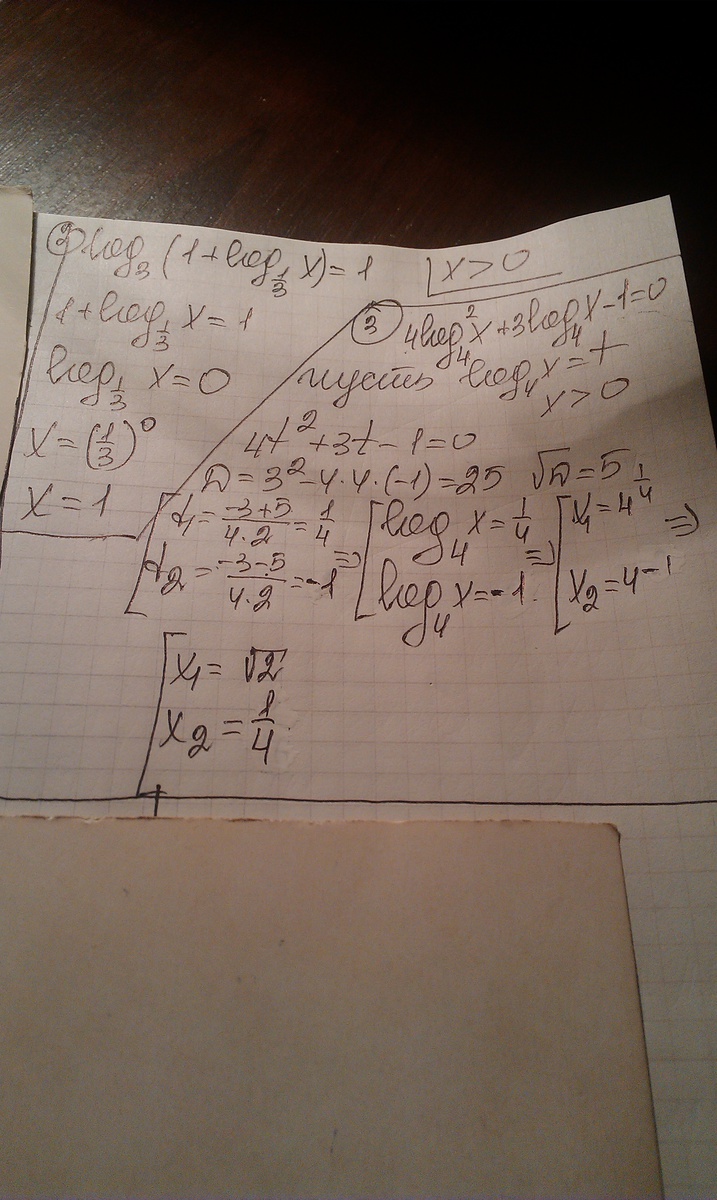 ② log₃(1+log_{1/3} x)=1 x>0
1+log_{1/3} x=1
log_{1/3} x=0
x=(1/3)⁰
x=1
③ 4log₄²x+3log₄x-1=0
пусть log₄x=t
x>0
4t²+3t-1=0
D=3²-4·4·(-1)=25 √D=5
[t₁=(-3+5)/(4·2)=1/4 => [log₄ x=1/4 => [x₁=4^{1/4} =>
t₂=(-3-5)/(4·2)=-1 log₄ x=-1 x₂=4⁻¹
[x₁=√2
x₂=1/4